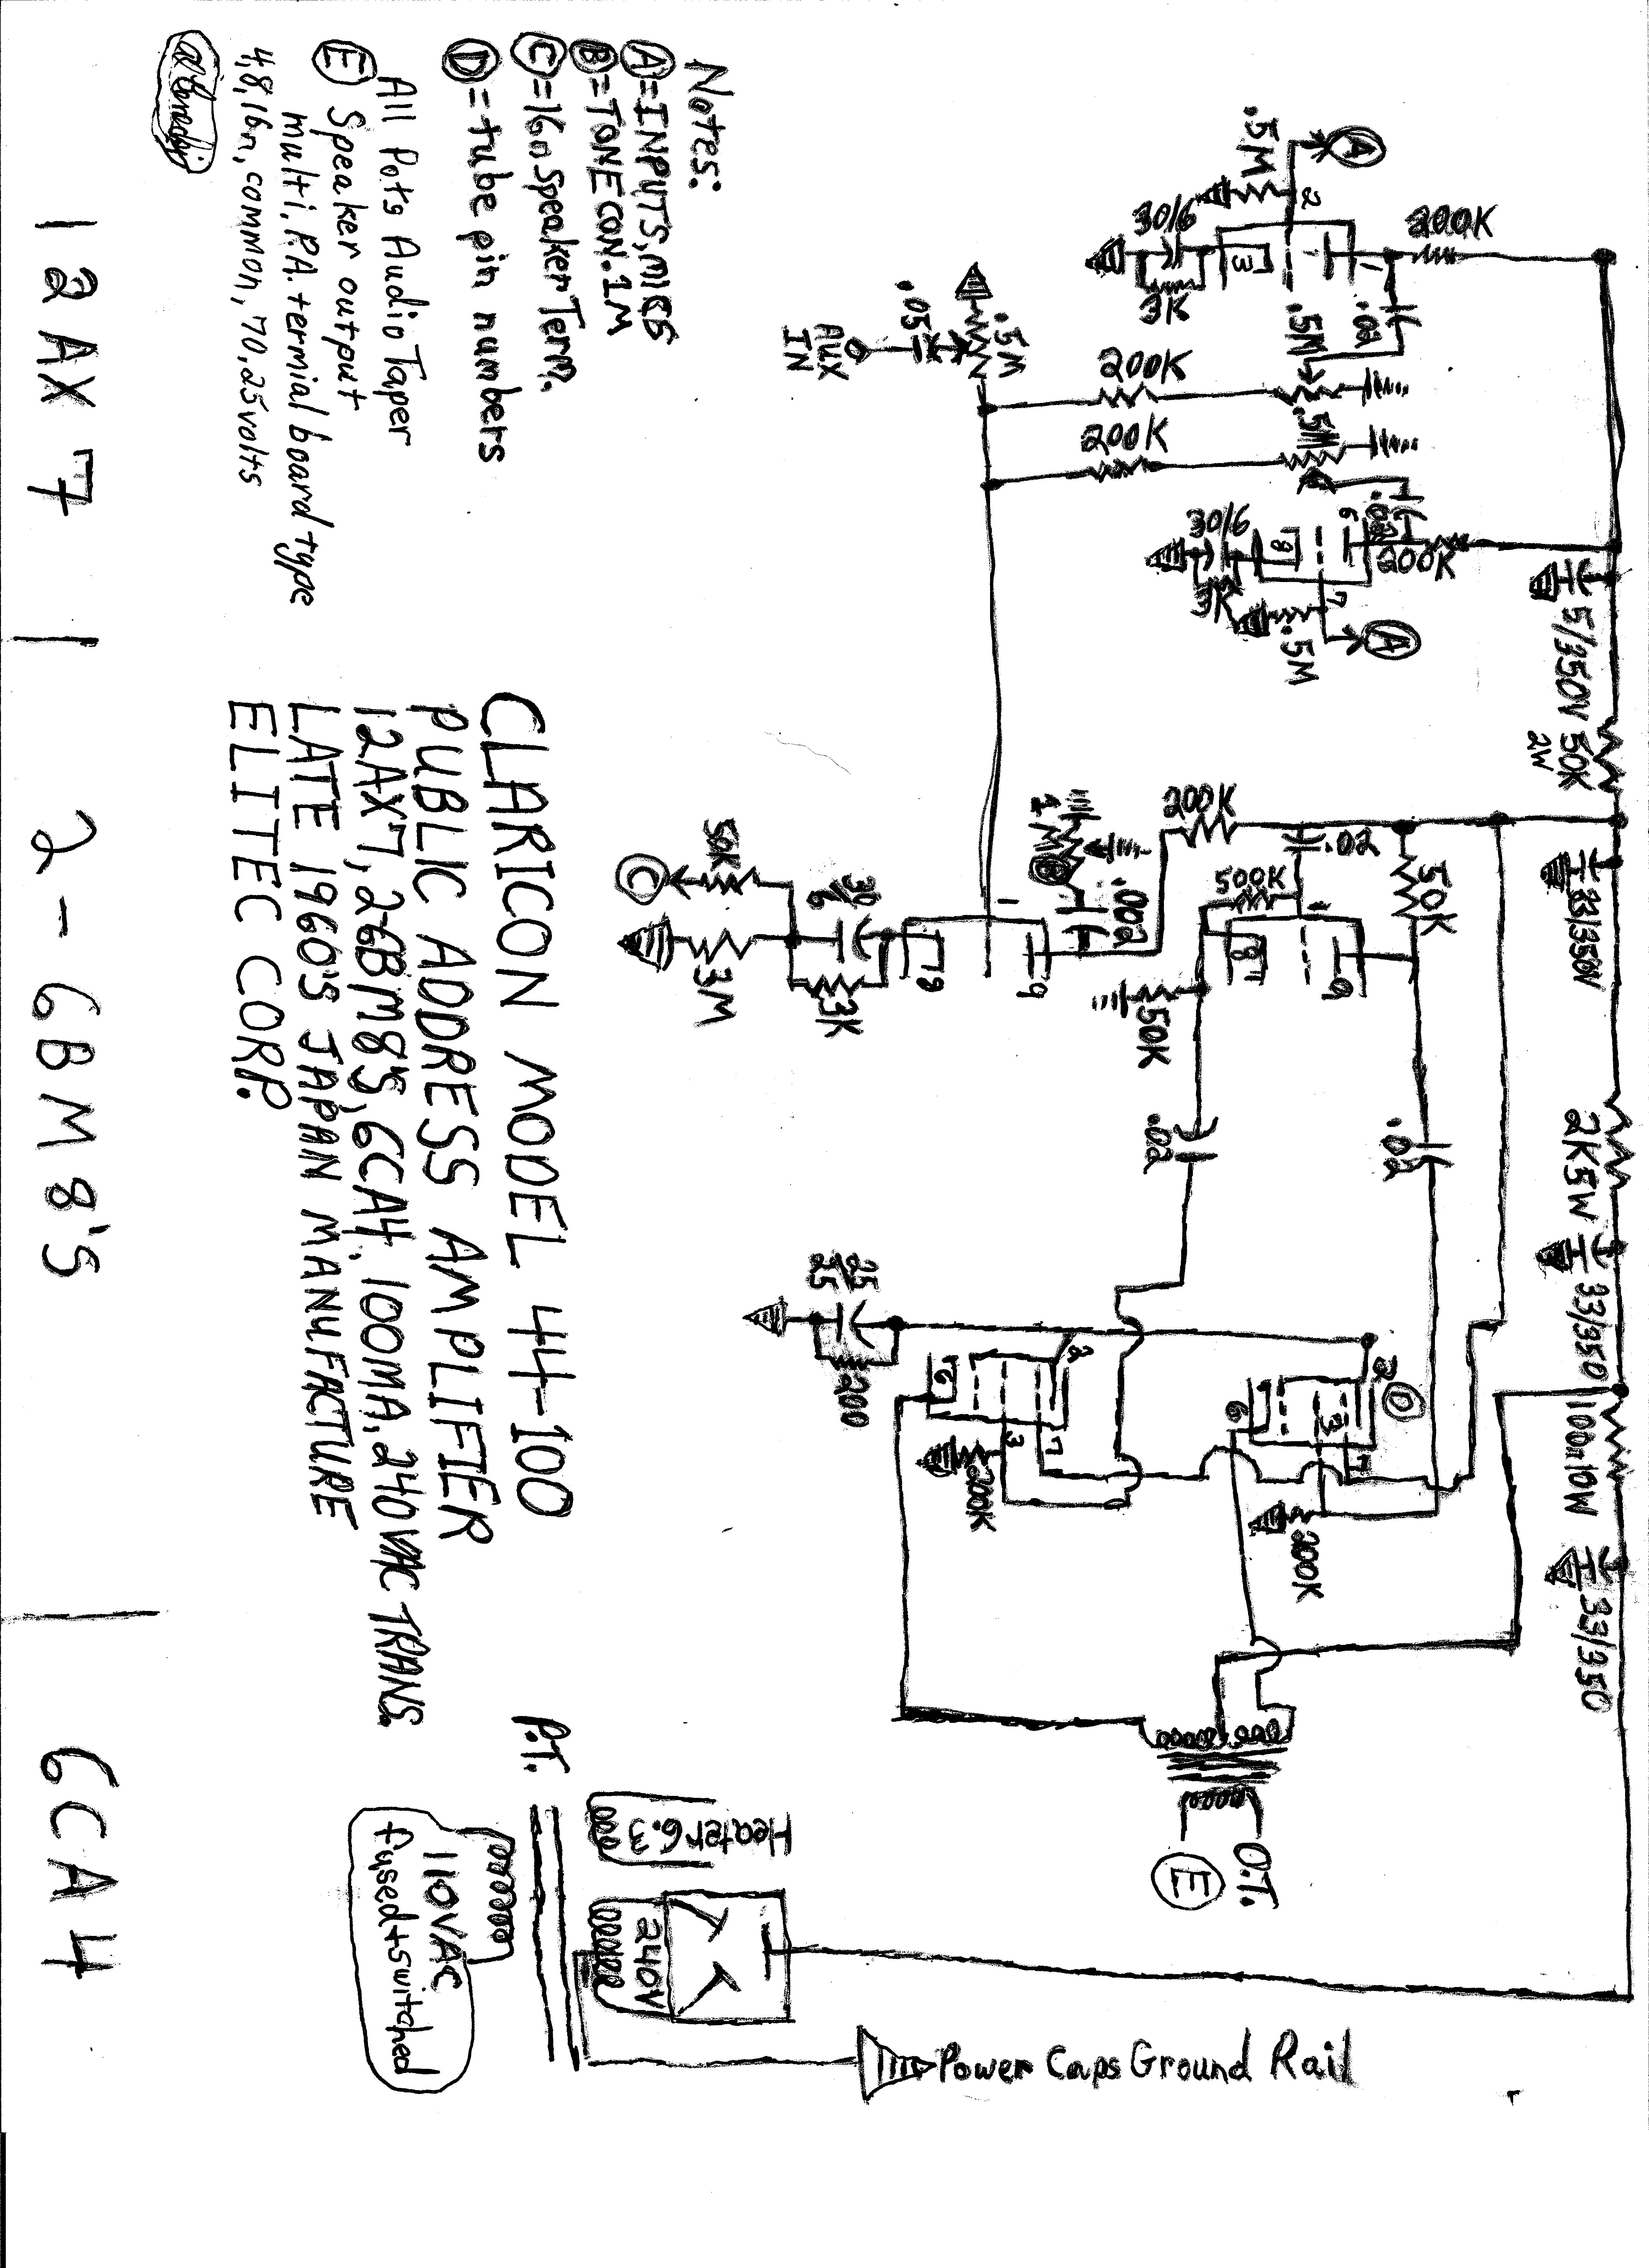 .5M
A
2
30/6
3
3K
1
200K
.02
.5M
200K
.5M
200K
.5M
.05
AUX
IN
30/6
8
6
.02
200K
3K
7
.5M
A
5/350V
50K
2W
33/350V
2K5W
33/350
100Ω10W
33/350
200K
.02
50K
500K
1
8
9
50K
1M
B
.002
1
9
30/6
3K
50K
C
3M
.02
.02
25/25
200
6
2
3
7
200K
2
D
6
3
7
200K
O.T.
E
P.T.
Heater 6.3
240V
110VAC
fused+switched
Power Caps Ground Rail
Notes:
A=INPUTS,MICS
B=TONE CON.1M
C=16Ω Speaker Term.
D=tube pin numbers
All Pots Audio Taper
E Speaker output
multi.P.A. termial board type
4,8,16Ω, common, 70,25volts
CLARICON MODEL 44-100
PUBLIC ADDRESS AMPLIFIER
12AX7, 2 6BM8'S, 6CA4. 100MA, 240VAC TRANS.
LATE 1960'S JAPAN MANUFACTURE
ELITEC CORP.
12AX7 | 2-6BM8'S | 6CA4